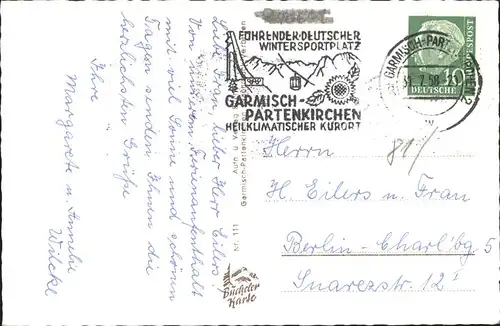 Liebe Frau, lieber Herr Eilers
Von unserem Ferienaufenthalt
mit viel Sonne und schönen
Tagen senden Ihnen die
herzlichsten Grüße
Ihre
Margarete u. Annelie
Wilcke
FÜHRENDER DEUTSCHER
WINTERSPORTPLATZ
GARMISCH-
PARTENKIRCHEN
HEILKLIMATISCHER KURORT
GARMISCH-PARTENKIRCHEN 2
7.58
10
DEUTSCHE
BUNDESPOST
Aufn. u.
Garmisch-Partenkirchen
Nr. 111
Bücheler
Karte
Herrn
H. Eilers u. Frau
Berlin-Charl'bg 5
Suarezstr. 12 I